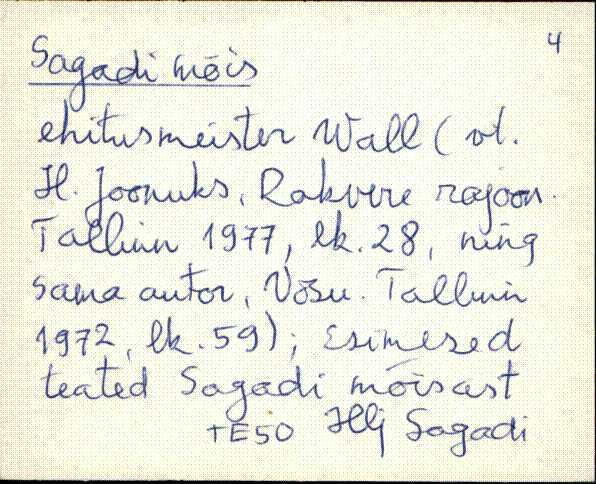 4
Sagadi mõis
ehitusmeister Wall (vt.
H. Joonuks, Rakvere rajoon.
Tallinn 1977, lk. 28, ning
sama autor, Võsu. Tallinn
1972, lk. 59); esimesed
teated Sagadi mõisast
Sagadi